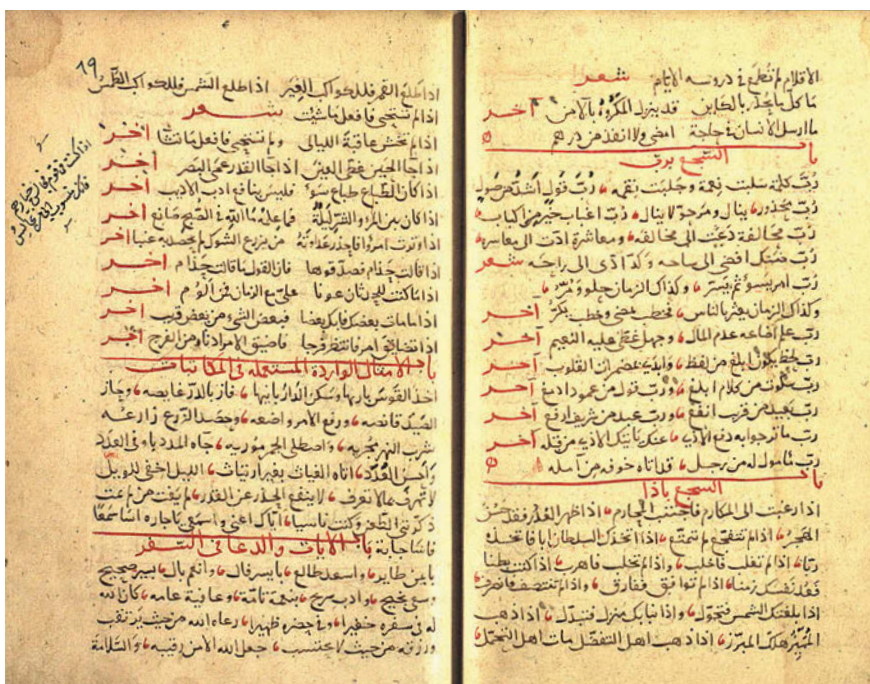 الاقلام لم تطمع في دروسه الايام شعر
ما كل ما يحذر بالكاين قد ينزل المكروه بالآمن آخر
ما ارسل الانسان في حاجة امضى ولا انفذ من درهم
باب السجع برب
رب كلمة سلبت نعمة وجلبت نقمه رب قول اشد من صول
رب محذور ينال ومرجو لا ينال رب اغباب خير من اكباب
رب مخالفة دعت الى مخالفه ومعاشرة ادت الى معاسره
رب ضنك افضى الى ساحه وكد ادى الى راحه شعر
رب امر يسوء ثم يسر وكذاك الزمان حلو ومر
وكذاك الزمان يعثر بالناس فخطب مضى وخطب يكر آخر
رب علم اضاعه عدم المال وجهل غطى عليه النعيم آخر
رب لحظ يكون ابلغ من لفظ وابدى لمضمرات القلوب آخر
رب سكوت من كلام ابلغ ورب قول من عمود ادمغ آخر
رب بعيد من قريب انفع ورب عبد من شريف ارفع آخر
رب ما ترجو به دفع الاذى عنك ياتيك الاذى من قبله آخر
رب مامول له من رجل قد اتاه خوفه من امله
باب السجع باذا
اذا رغبت الى المكارم فاجتنب المحارم اذا ظهر الغدر فقد حسن
الهجر اذا لم تنتفع لم تتمتع اذا اتخذك السلطان ابا فاتخذه
ربا اذا لم تغلب فاخلب واذا لم تخلب فاهرب اذا كنت بطنا
فعد نفسك زمنا اذا لم توافق ففارق واذا لم تنتصف فانصرف
اذا بلغتك الشمس فتحول واذا نبا بك منزل فتبدل اذا ذهب
المميز هلك المبرز اذا ذهب اهل التفضل مات اهل التجمل
19
اذا طلع القمر فللكواكب الغير اذا طلع الشمس فللكواكب الطمس
اذا لم تستحي فافعل ما شئت شعر
اذا لم تخش عاقبة الليالي ولم تستحي فافعل ما تشا آخر
اذا جا الحين غطى العين اذا جا القدر عمي البصر آخر
اذا كان الطباع طباع سوء فليس بنافع ادب الاديب آخر
اذا كان بين المرء والشر ليلة فما علمه ما الله في الصبح صانع آخر
اذا وترت امروا فاحذر عداوته من يزرع الشوك لم يحصد به عنبا آخر
اذا قالت حذام فصدقوها فان القول ما قالت حذام آخر
اذا ما كنت للحدثان عونا علي مع الزمان فمن الوم آخر
اذا ما مات بعضك فابك بعضا فبعض الشيء من بعض قريب آخر
اذا تضايق امر فانتظر فرجا فاضيق الامر ادناه من الفرج آخر
باب الامثال الواردة المستعمله في المكاتبات
اخذ القوس باريها وسكن الدار بانيها فاز بالدر غايصه وحاز
الصيد قانصه ورفع الامر واضعه وحصد الزرع زارعه
شرب النهر مجريه واصطلى الجمر موريه جاه المدد باوفى العدد
واحسن العدد اتاه الغياث بغير ارتياث الليل اخفى للويل
لا تهرف بما لا تعرف لا ينفع الحذر عن القدر لم يفت من لم يمت
ذكرتني الطعن وكنت ناسيا اياك اعني واسمعي يا جاره اسا سمعا
فاسا جابة باب الايات والدعا في السفر
بايمن طاير واسعد طالع بايسر فال وانعم بال بسير صحيح
وسعي نجيح وادب مريح بنعمة تامة وعافية عامه كان الله
له في سفره خفيرا وفي حضره ظهيرا رعاه الله من حيث يرتقب
ورزقه من حيث لا يحتسب جعل الله الامن رقيبه والسلامة